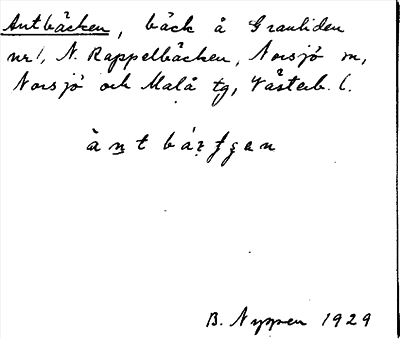 Antbäcken, bäck å Granliden
nr 1, N. Rappelbäcken, Norsjö sn,
Norsjö och Malå tg, Västerb. l.
B. Nyppen 1929